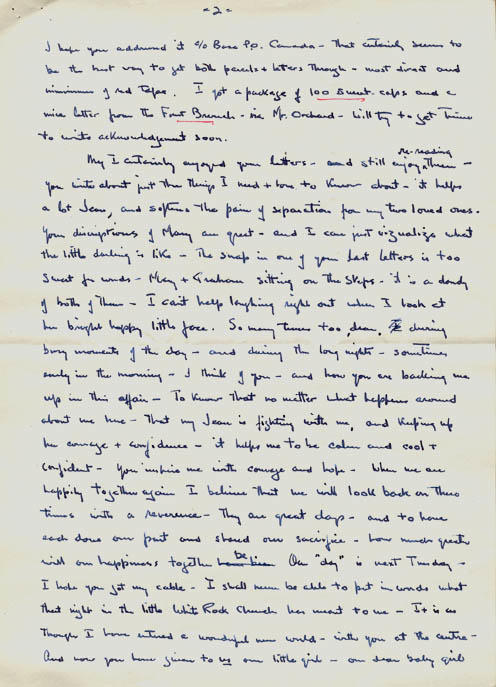 - 2 -
I hope you addressed it c/o Base P.O. Canada - That certainly seems to
be the best way to get both parcels + letters through - most direct and
minimum of red tape. I got a package of 100 Sweet caps and a
nice letter from the Fruit Branch - via Mr. Orchard - Will try to get time
to write acknowledgement soon.
My I certainly enjoyed your letters - and still enjoy re-reading them -
you write about just the things I need + love to know about - it helps
a lot Jean, and softens the pain of separation from my two loved ones.
Your discriptions of Mary are great - and I can just vizualize what
the little darling is like - The snap in one of your last letters is too
sweet for words - Mary + Graham sitting on the steps - it is a dandy
of both of them - I can't help laughing right out when I look at
her bright happy little face. So many times too, dear, during
busy moments of the day - and during the long nights - sometimes
early in the morning - I think of you - and how you are backing me
up in this affair - To know that no matter what happens around
about me here - That my Jean is fighting with me, and keeping up
her courage + confidence - it helps me to be calm and cool +
confident - You inspire me with courage and hope - When we are
happily together again I believe that we will look back on these
times with a reverence - They are great days - and to have
each done our part and shared our sacrifice - how much greater
will our happiness together be Our "day" is next Tuesday -
I hope you got my cable - I shall never be able to put in words what
that night in the little White Rock Church has meant to me - It is as
though I have entered a wonderful new world - with you at the centre -
And now you have given to us our little girl - our dear baby girl